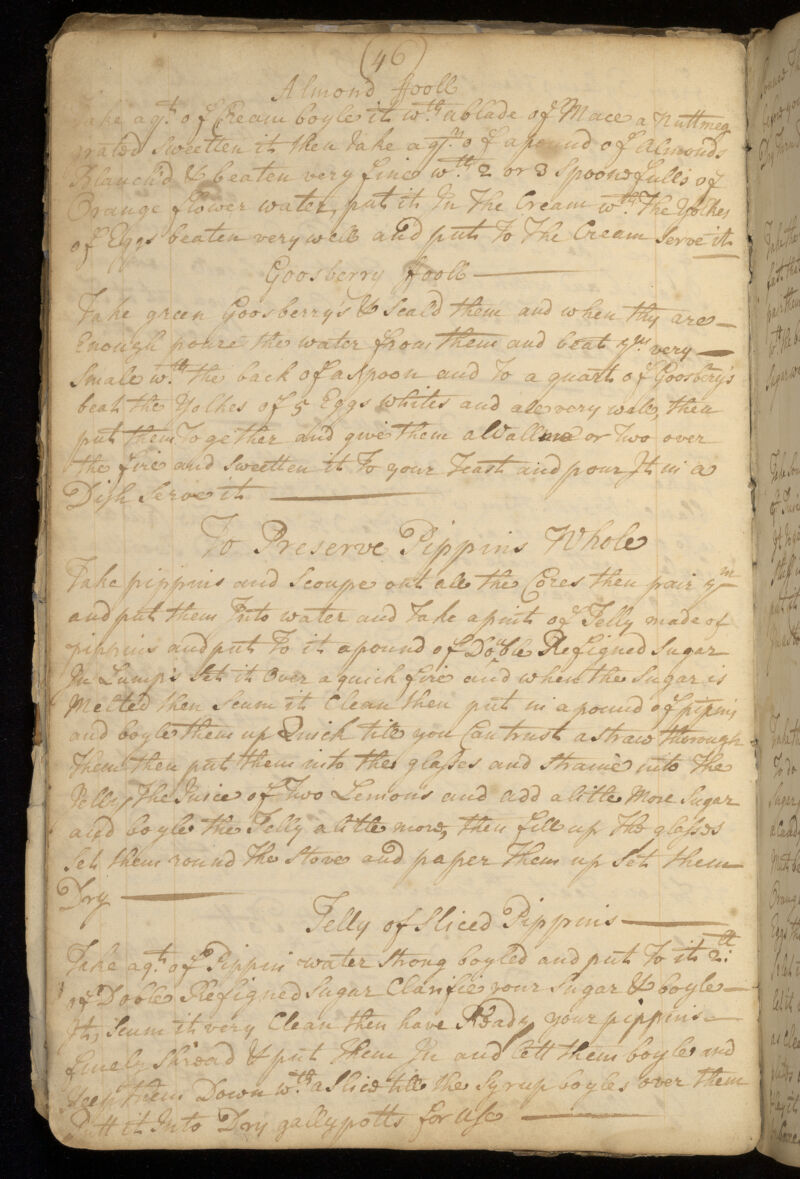 (46)
Almond ffooll
Take a qt. of Cream boyle it wth. a blade of Mace a Nuttmeg
grated Sweetten it then Take a qr. of a pound of Almonds
Blanch'd & beaten very fine wth. 2 or 3 Spoonefulls of
Orange flower water, put it In The Cream wth. The Yolkes
of Eggs beaten very well and put To The Cream Serve it
Goosberry ffooll
Take green Goosberry's & Scald them and when thy are
Enough poure the water from them and beat ym. very
Smale wth. the back of a Spoon and To a quart of Goosbery's
beat the Yolkes of 5 Eggs whites and all very wele, then
put them Together and give them a Wallme or Two over
the fire and Sweetten it To your Teast and pour It in a
Dish Serve it
To Preserve Pippins Whole
Take pippins and Scoupe out all the Cores then pair ym
and put them Into water and Take a pint of Jelly made of
pippins and put To it a pound of Doble Refsigned Sugar
In Lump's Set it Over a quick fire and when the Sugar is
Melted then Scum it Clean then put in a pound of pipins
and boyle them up Quick till you Can trust a straw thorough
Them then put them into the glasses and straine into The
Jelly The Juice of Two Lemons and add a little More Sugar
and boyle the Jelly a little more, then fill up The glasses
Set them round The Stove and paper Them up Set them
Dry
Jelly of Sliced Pippins
Take a qt. of Pippin water Strong boyled and put To it 2tt.
of Doble Refsigned Sugar Clarifie your Sugar & boyle
It, Scum it very Clean then have Ready your pippins
finely Shread & put Them In and lett them boyle and
Keep them Down wth. a Slice till the Syrup boyles over them
Putt it Into Dry gallypotts for Use